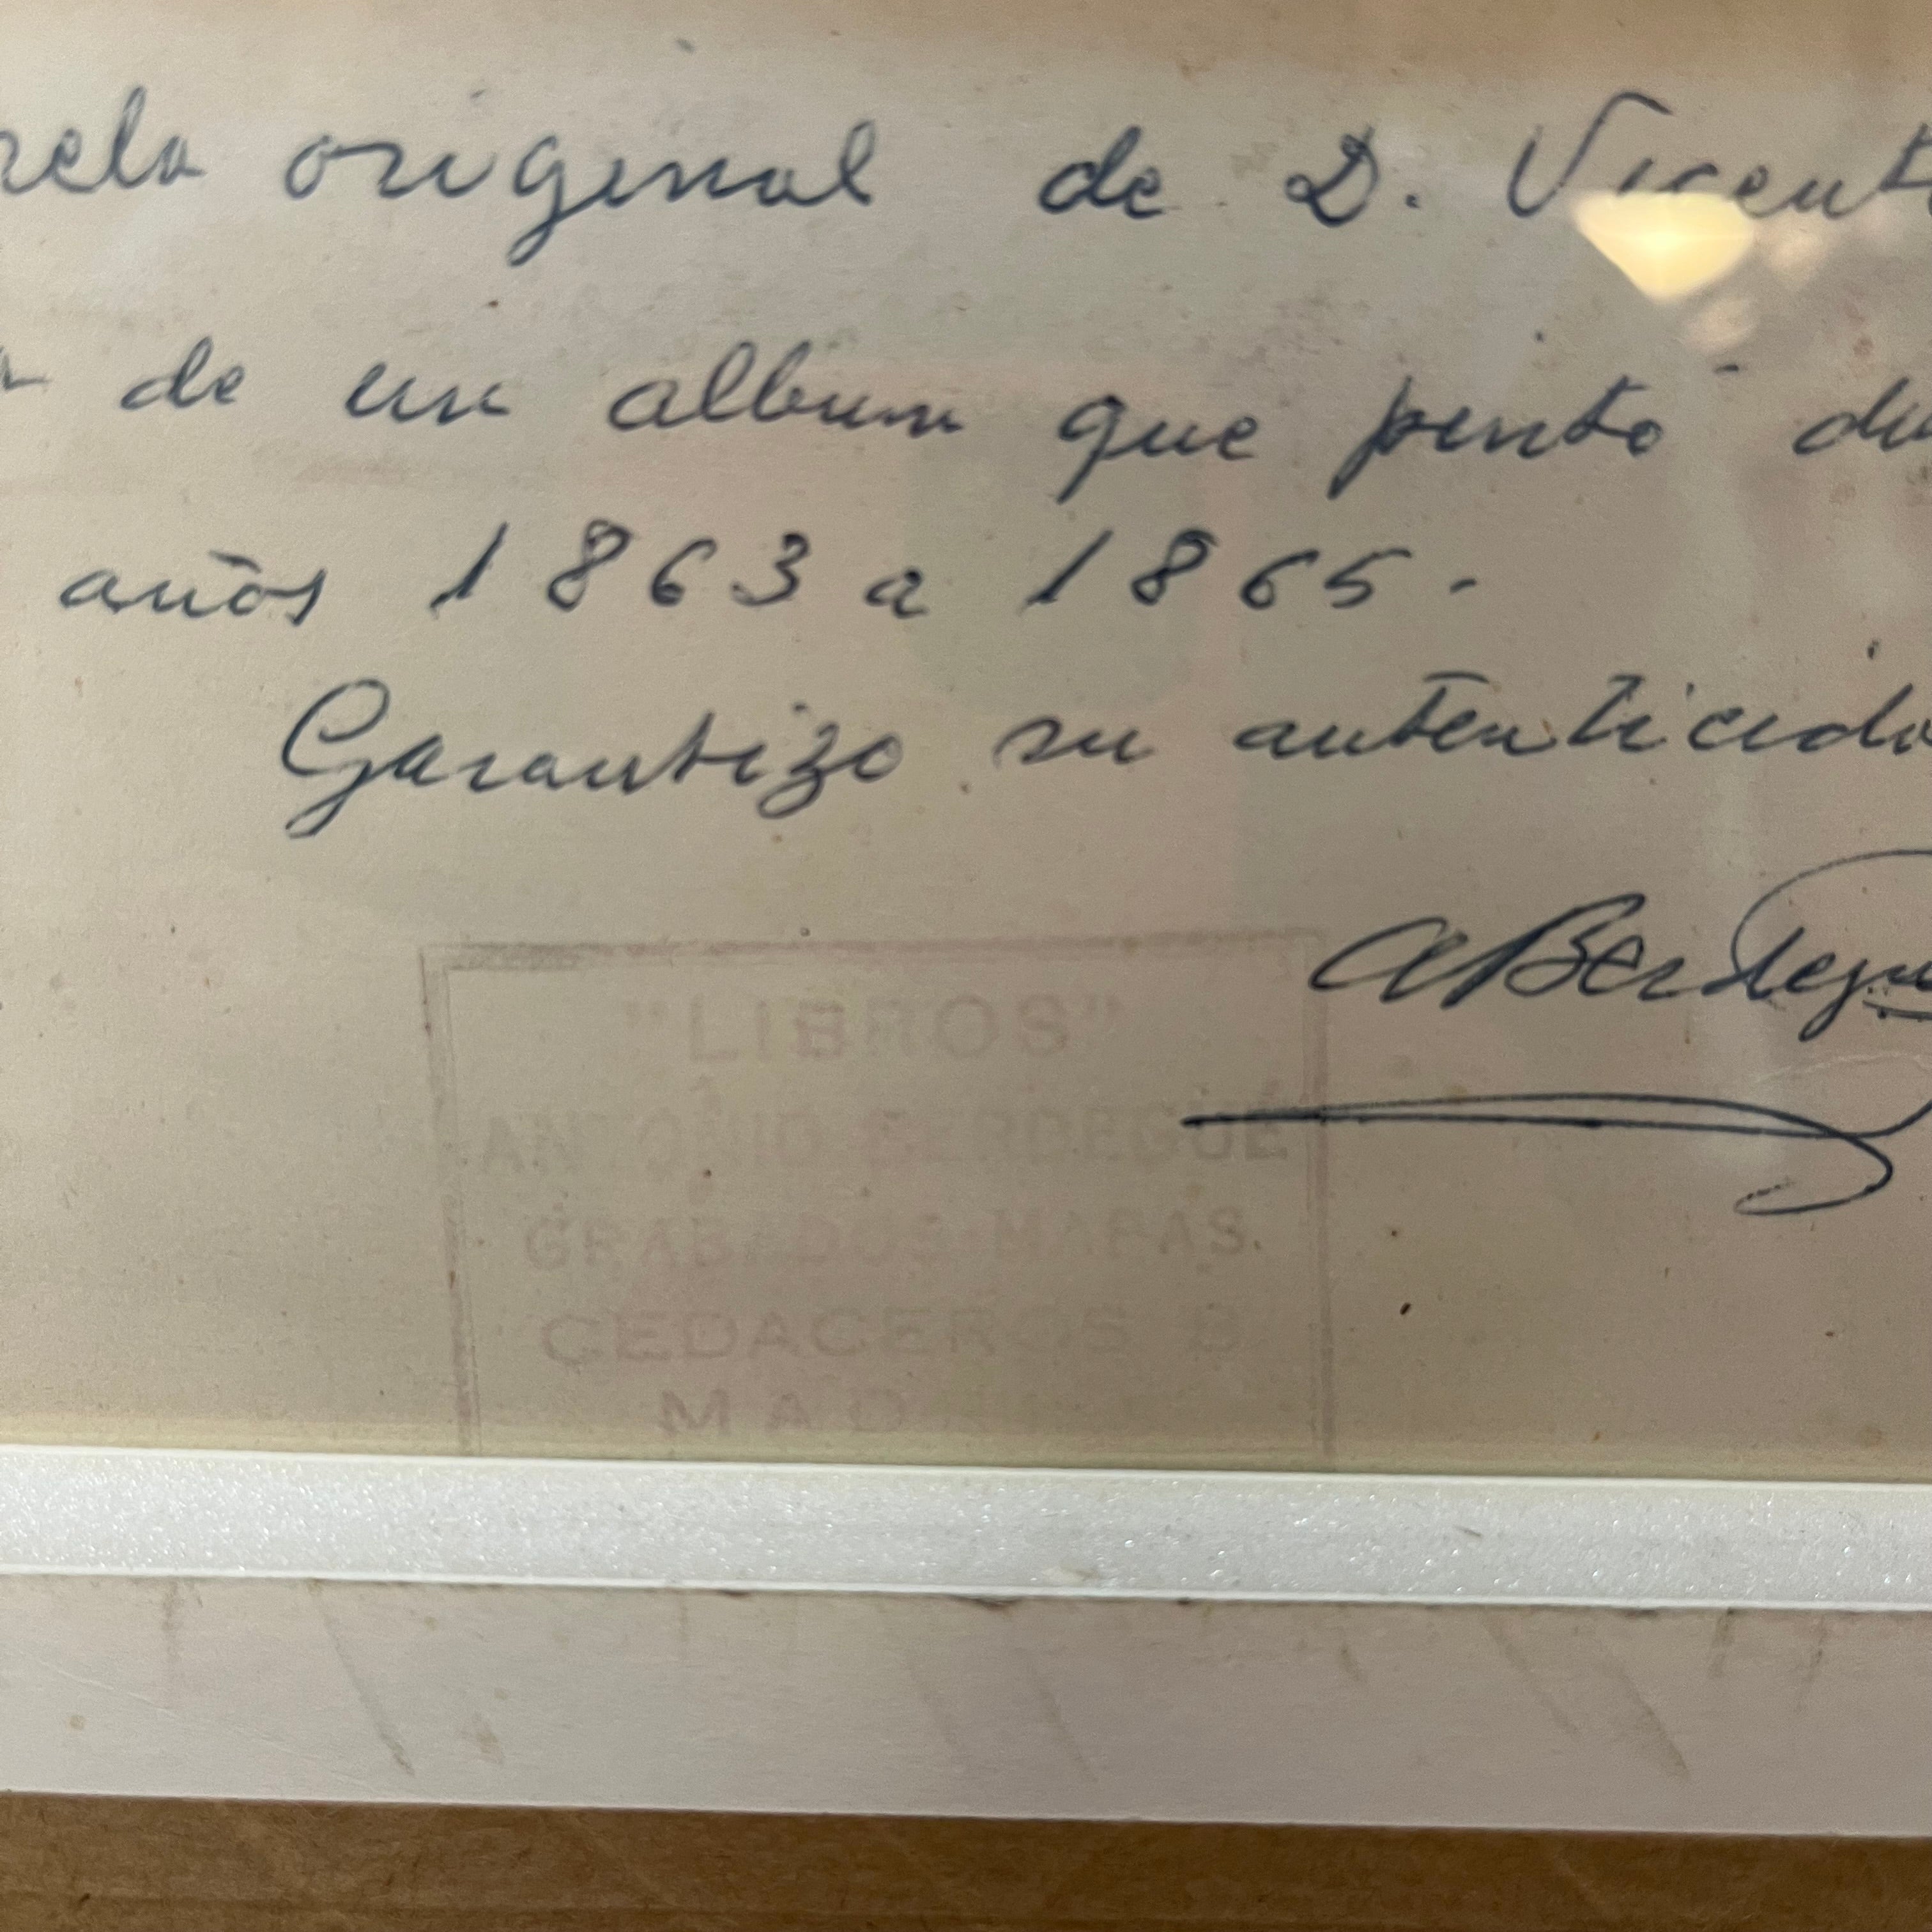 rela original de D. Vicent
de un album que pintó du
años 1863 a 1865.
Garantizo su autenticida
ABerdegu
"LIBROS"
ANTONIO BERDEGUÉ
GRABADOS-MAPAS.
CEDACEROS 8
MAD